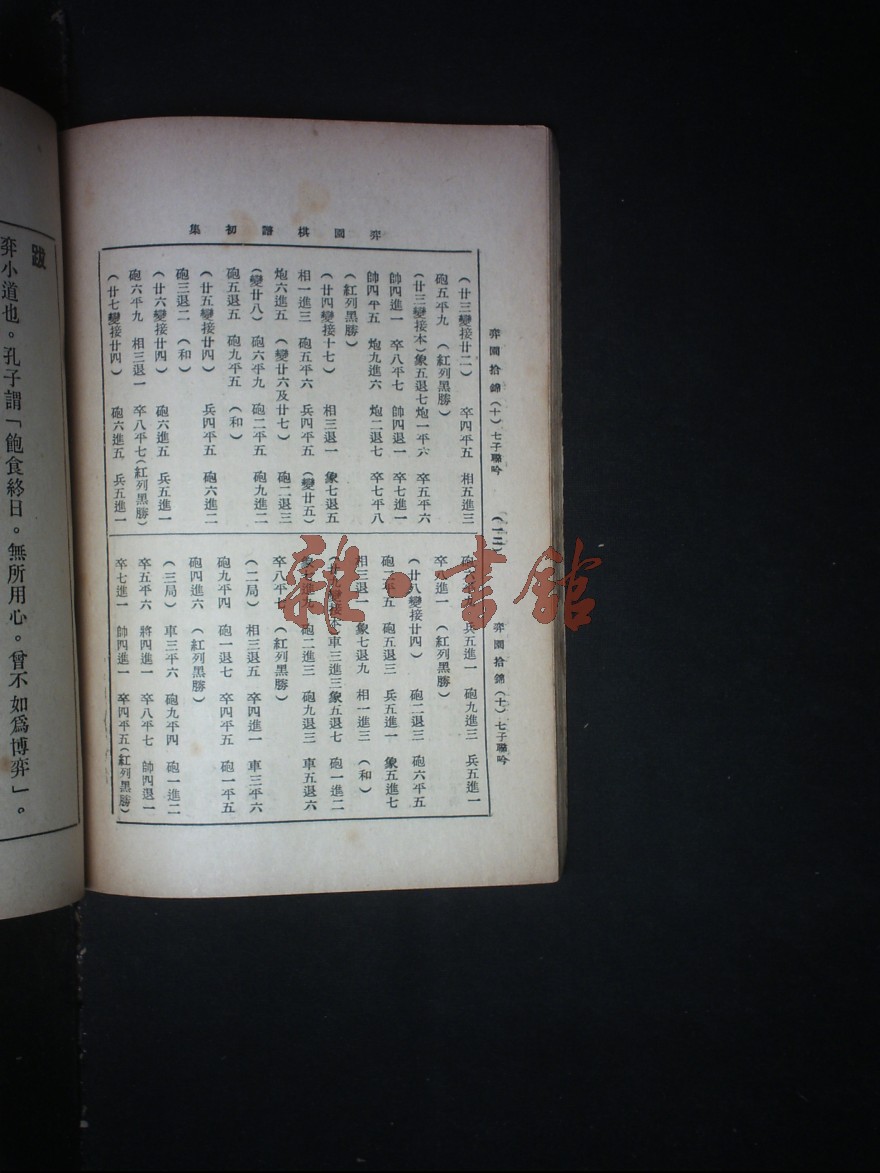 弈園棋譜初集
弈園拾錦(十)七子聯吟 (一二) 弈園拾錦(十)七子聯吟
(廿三變接廿二) 卒四平五 相五進三
砲五平九 (紅列黑勝)
(廿三變接本)象五退七炮一平六 卒五平六
帥四進一 卒八平七 帥四退一 卒七進一
帥四平五 炮九進六 炮二退七 卒七平八
(紅列黑勝)
(廿四變接十七) 相三退一 象七退五
相一進三 砲五平六 兵四平五 (變廿五)
炮六進五 (變廿六及廿七) 砲二退三
(變廿八) 砲六平九 砲二平五 砲九進二
砲五退五 砲九平五 (和)
(廿五變接廿四) 兵四平五 砲六進二
砲三退二 (和)
(廿六變接廿四) 砲六進五 兵五進一
砲六平九 相三退一 卒八平七(紅列黑勝)
(廿七變接廿四) 砲六進五 兵五進一
砲平九 兵五進一 砲九進三 兵五進一
卒八進一 (紅列黑勝)
(廿八變接廿四) 砲二退三 砲六平五
砲二平五 砲五退三 兵五進一 象五進七
相三退一 象七退九 相一進三 (和)
變接 車三進三象五退七 砲一進二
象七進九 砲二進三 砲九退三 車五退六
卒八平七 (紅列黑勝)
(二局) 相三退五 卒四進一 車三平六
砲九平四 砲一退七 卒四平五 砲一平五
砲四進六 (紅列黑勝)
(三局) 車三平六 砲九平四 砲一進二
卒五平六 將四進一 卒八平七 帥四退一
卒七進一 帥四進一 卒四平五(紅列黑勝)
跋
弈小道也。孔子謂「飽食終日。無所用心。曾不如爲博弈」。
雜·書館